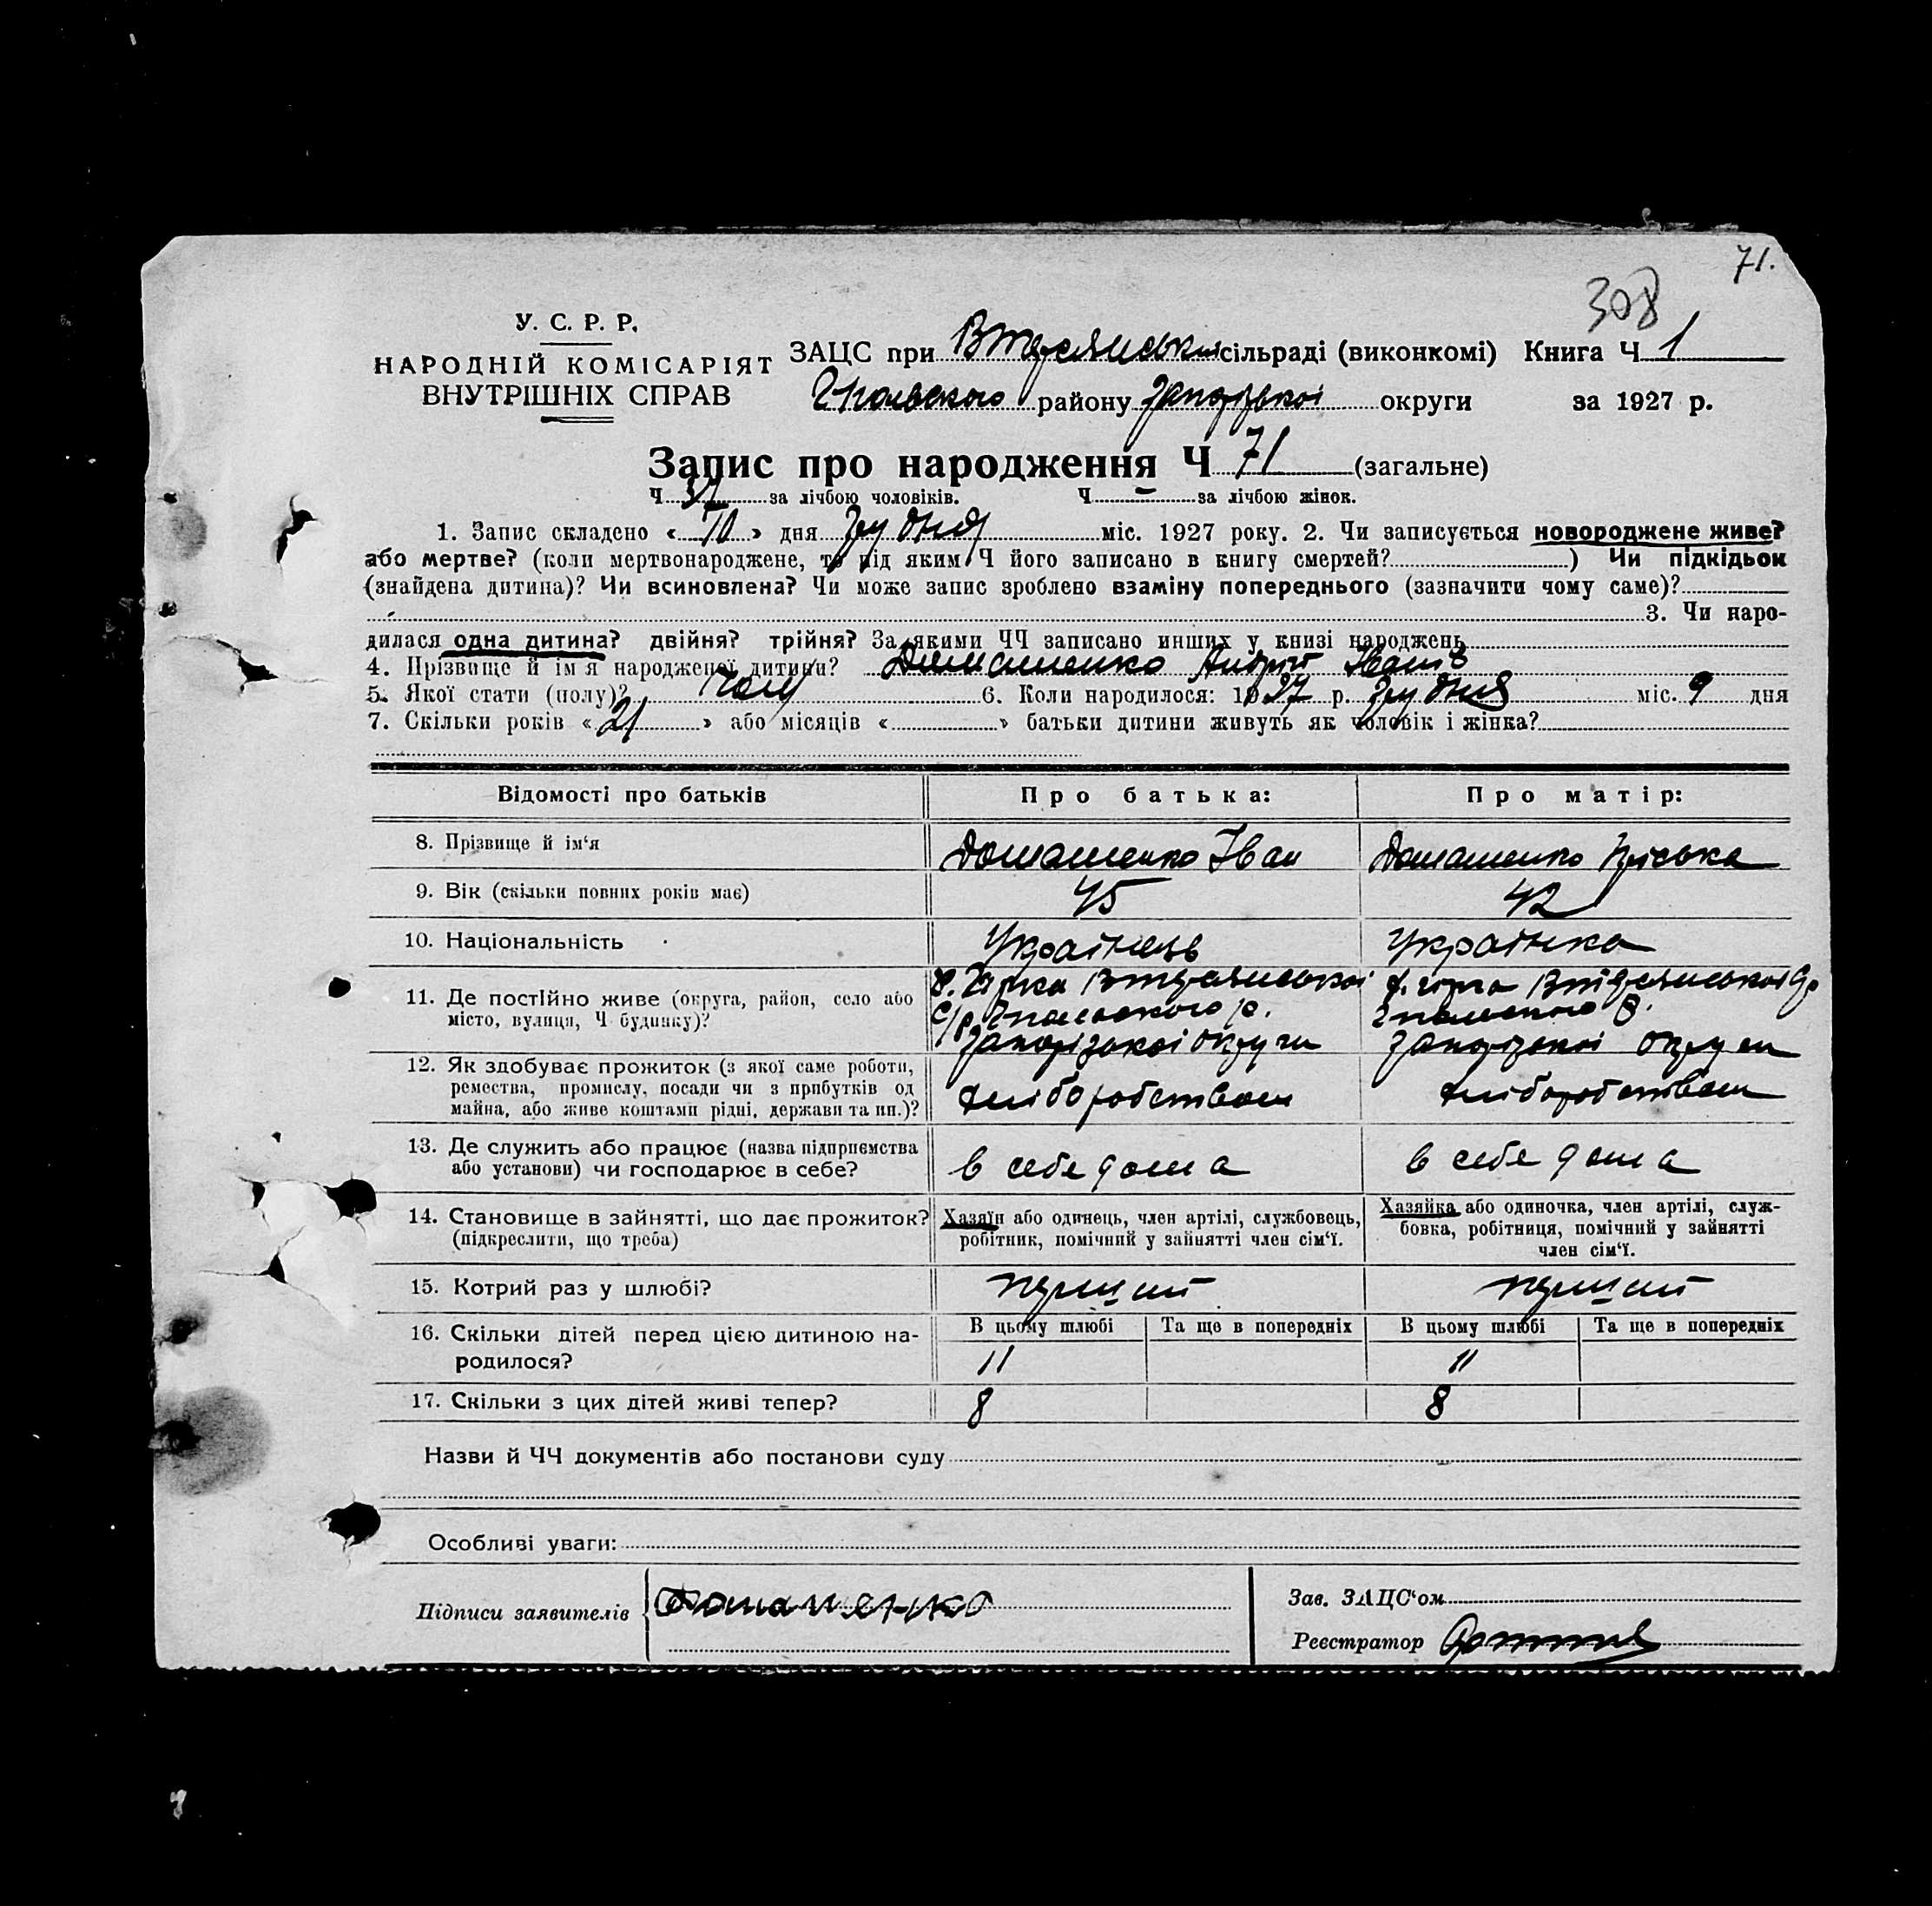 71.
308
У. С. Р. Р.
НАРОДНІЙ КОМІСАРІЯТ
ВНУТРІШНІХ СПРАВ
ЗАЦС при сільраді (виконкомі) Книга Ч 1
району Запорізької округи за 1927 р.
Запис про народження Ч 71 (загальне)
Ч за лічбою чоловіків. Ч - за лічбою жінок.
1. Запис складено « 10 » дня грудня міс. 1927 року. 2. Чи записується новороджене живе?
або мертве? (коли мертвонароджене, то під яким Ч його записано в книгу смертей? ) Чи підкідьок
(знайдена дитина)? Чи всиновлена? Чи може запис зроблено взаміну попереднього (зазначити чому саме)?
3. Чи наро-
дилася одна дитина? двійня? трійня? За якими ЧЧ записано инших у книзі народжень
4. Прізвище й ім'я народженої дитини? Домашенко Андрій Іванів
5. Якої стати (полу)? чол 6. Коли народилося: 1927 р. грудня міс. 9 дня
7. Скільки років « 21 » або місяців « » батьки дитини живуть як чоловік і жінка?
Відомості про батьків Про батька: Про матір:
8. Прізвище й ім'я Домашенко Іван Домашенко Пріська
9. Вік (скільки повних років має) 45 42
10. Національність Українець Українка
11. Де постійно живе (округа, район, село або
місто, вулиця, Ч будинку)?
Запорізької округи Запорізької округи
12. Як здобуває прожиток (з якої саме роботи,
ремества, промислу, посади чи з прибутків од
майна, або живе коштами рідні, держави та ин.)? хліборобством хліборобством
13. Де служить або працює (назва підприємства
або установи) чи господарює в себе? в себе дома в себе дома
14. Становище в зайнятті, що дає прожиток?
(підкреслити, що треба)
Хазяїн або одинець, член артілі, службовець,
робітник, помічний у зайнятті член сім'ї.
Хазяйка або одиночка, член артілі, служ-
бовка, робітниця, помічний у зайнятті
член сім'ї.
15. Котрий раз у шлюбі? перший перший
16. Скільки дітей перед цією дитиною на-
родилося?
В цьому шлюбі Та ще в попередніх В цьому шлюбі Та ще в попередніх
11 11
17. Скільки з цих дітей живі тепер? 8 8
Назви й ЧЧ документів або постанови суду
Особливі уваги:
Підписи заявителів Домашенко
Зав. ЗАЦС'ом
Реєстратор